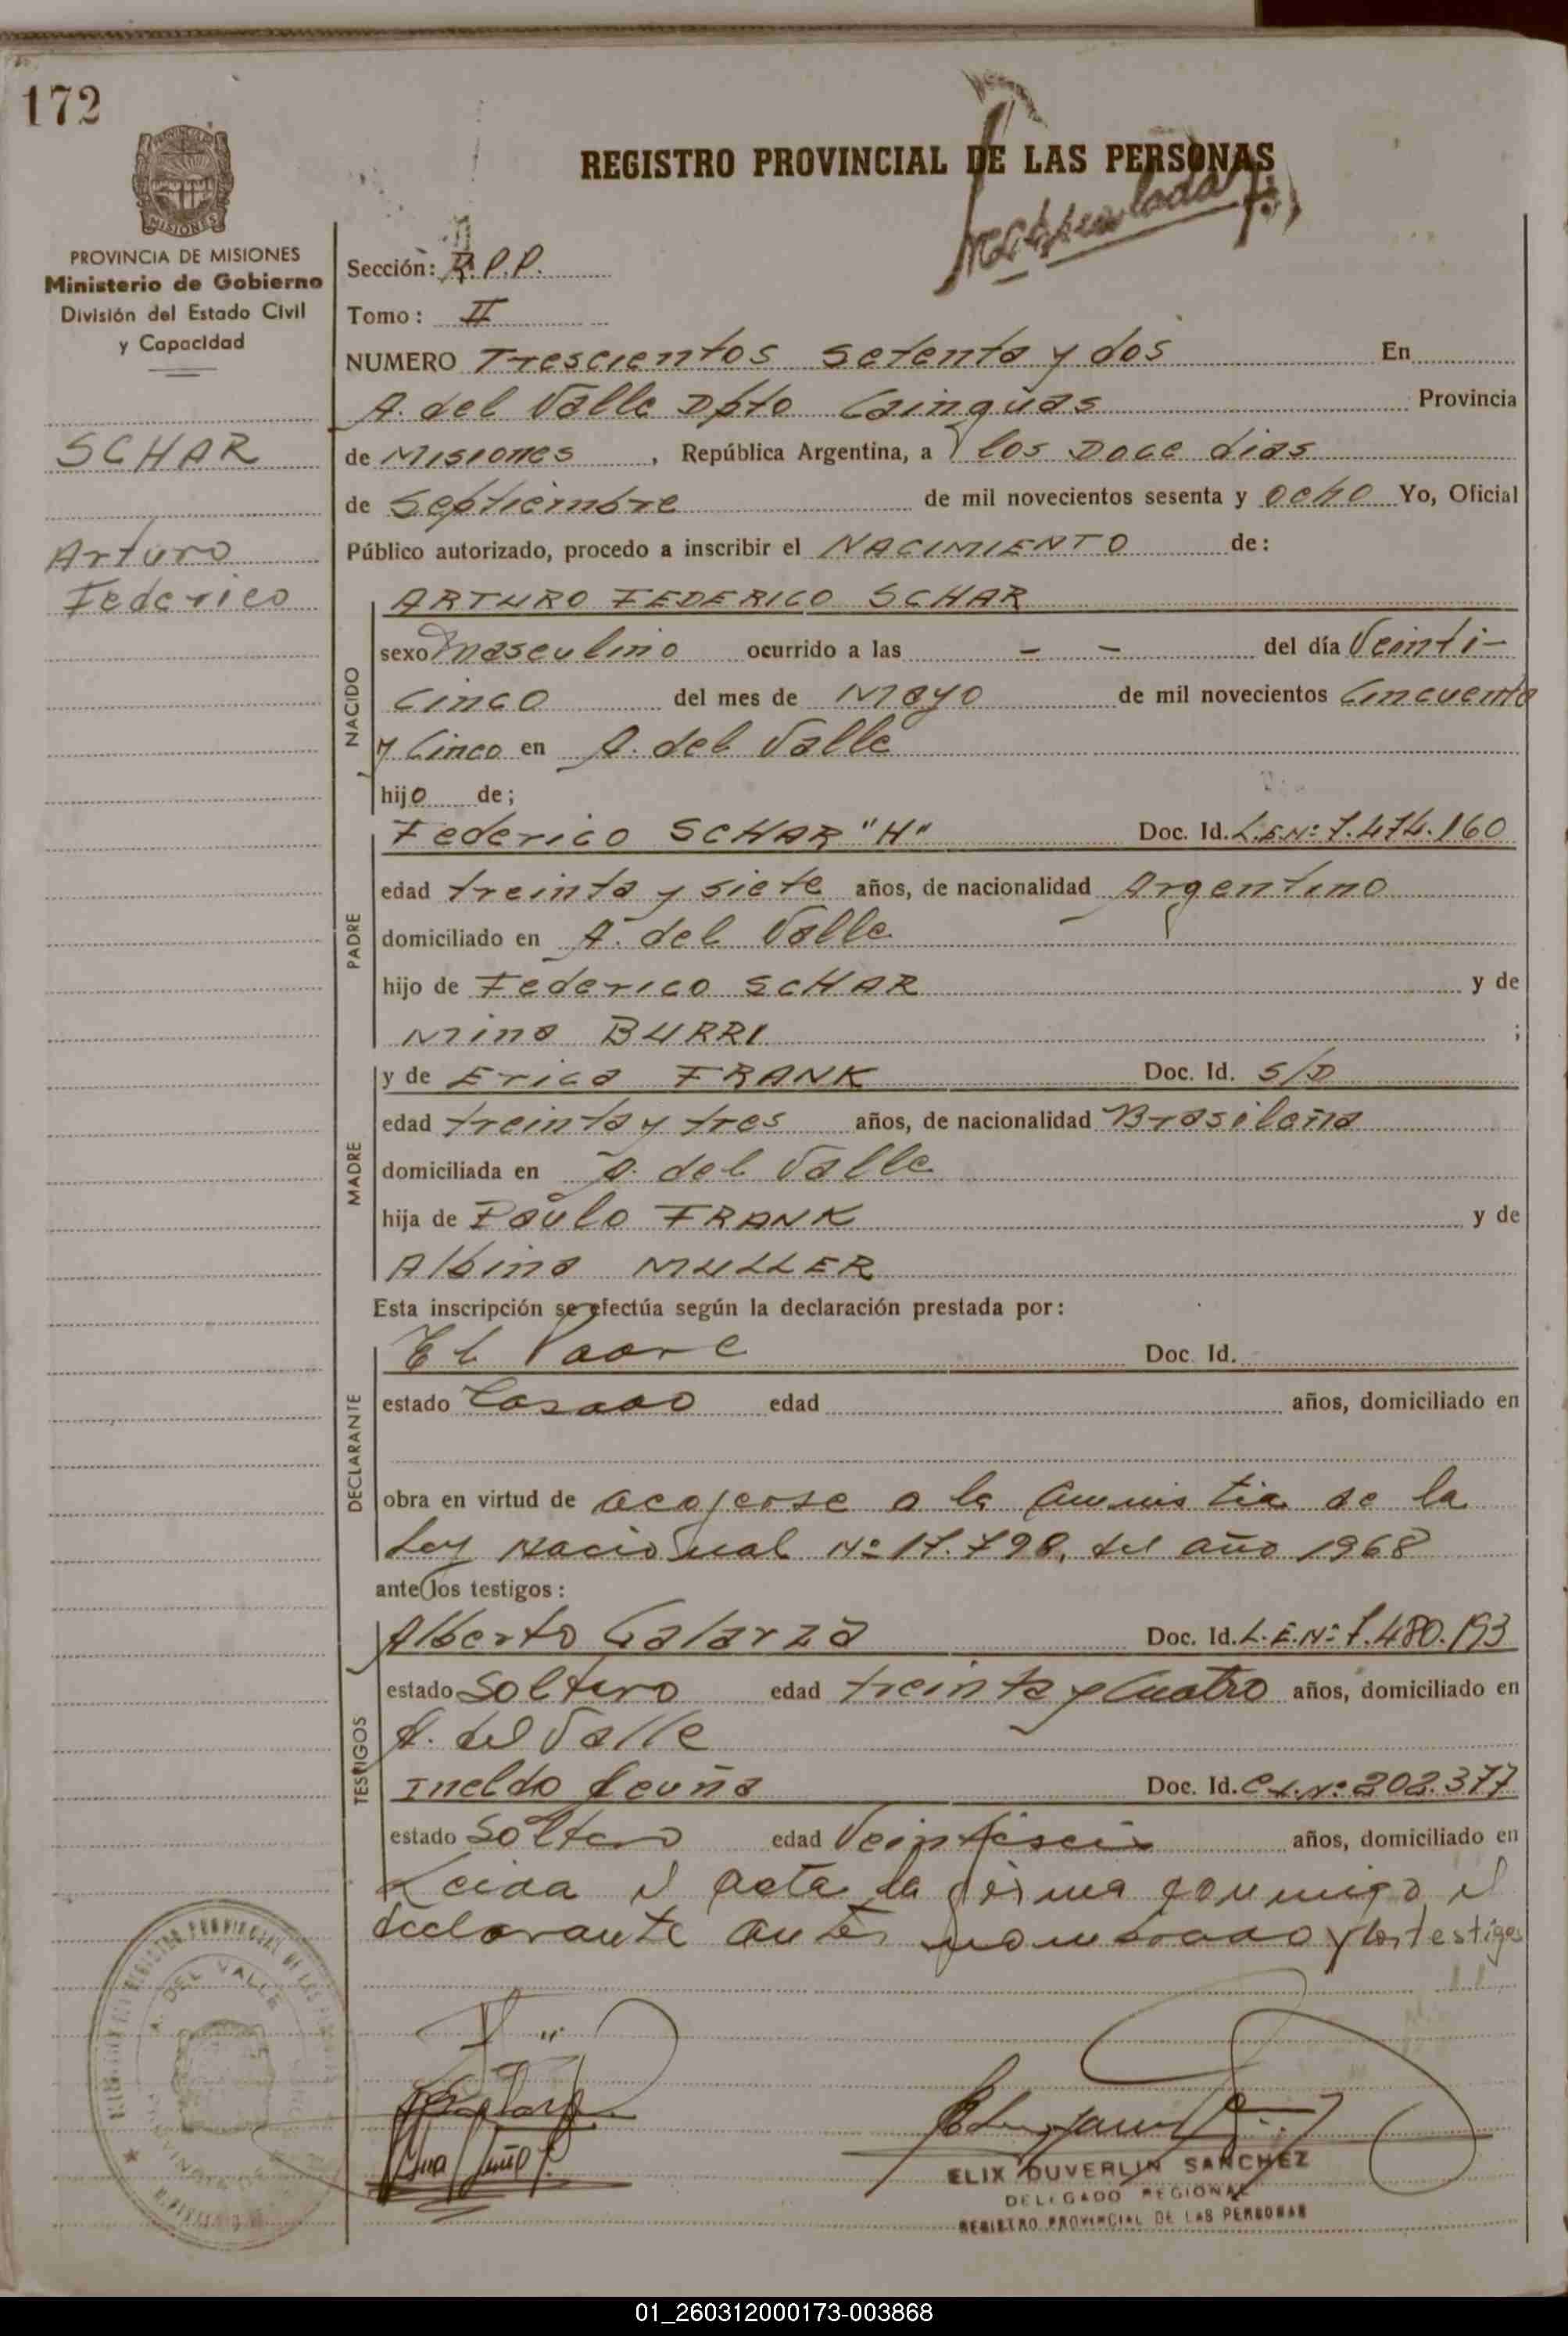 172
REGISTRO PROVINCIAL DE LAS PERSONAS
MISIONES
PROVINCIA DE MISIONES
Ministerio de Gobierno
División del Estado Civil
y Capacidad
SCHAR
Arturo
Federico
Sección: P.P.
Tomo: II
NUMERO Trescientos setenta y dos En
A. del Valle Dpto Cainguas Provincia
de Misiones, República Argentina, a los Doce dias
de Septiembre de mil novecientos sesenta y ocho Yo, Oficial
Público autorizado, procedo a inscribir el NACIMIENTO de:
NACIDO
ARTURO FEDERICO SCHAR
sexo masculino ocurrido a las - - del día Veinti-
cinco del mes de Mayo de mil novecientos Cincuenta
y Cinco en A. del Valle
hijo de;
PADRE
Federico SCHAR "H" Doc. Id. L.E.Nº 7.474.160
edad treinta y siete años, de nacionalidad Argentino
domiciliado en A. del Valle
hijo de Federico SCHAR y de
Mina BURRI ;
MADRE
y de Erica FRANK Doc. Id. S/D
edad treinta y tres años, de nacionalidad Brasileña
domiciliada en A. del Valle
hija de Paulo FRANK y de
Albina MULLER
Esta inscripción se efectúa según la declaración prestada por:
DECLARANTE
El Padre Doc. Id.
estado Casado edad años, domiciliado en
obra en virtud de acojerse a la amnistia de la
Ley Nacional Nº 17.798, del año 1968
ante los testigos:
TESTIGOS
Alberto Galarza Doc. Id. L.E.Nº 7.480.193
estado Soltero edad treinta y cuatro años, domiciliado en
A. del Valle
Ineldo Acuña Doc. Id. C.I.Nº 202.377
estado Soltero edad Veintiseis años, domiciliado en
Leida el acta la firma conmigo el
declarante antes nombrado y los testigos
A. DEL VALLE
ELIX DUVERLIN SANCHEZ
DELEGADO REGIONAL
REGISTRO PROVINCIAL DE LAS PERSONAS
01_260312000173-003868